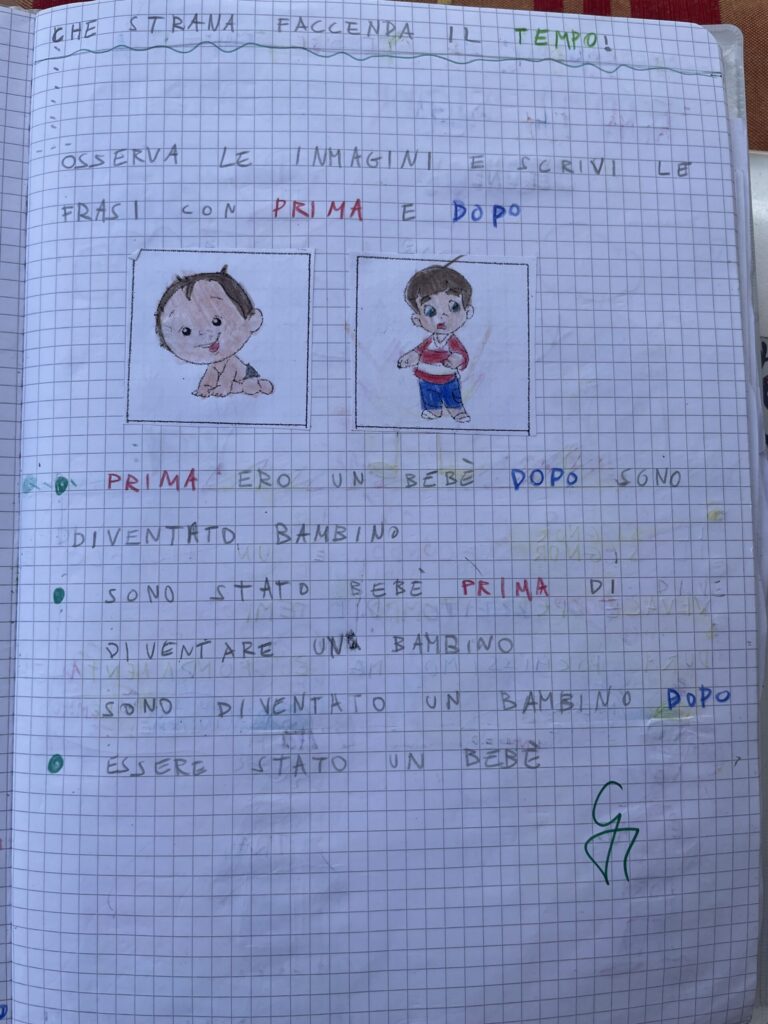 CHE STRANA FACCENDA IL TEMPO!
OSSERVA LE INMAGINI E SCRIVI LE
FRASI CON PRIMA E DOPO
PRIMA ERO UN BEBÈ DOPO SONO
DIVENTATO BAMBINO
SONO STATO BEBÈ PRIMA DI
DIVENTARE UN BAMBINO
SONO DIVENTATO UN BAMBINO DOPO
ESSERE STATO UN BEBÈ